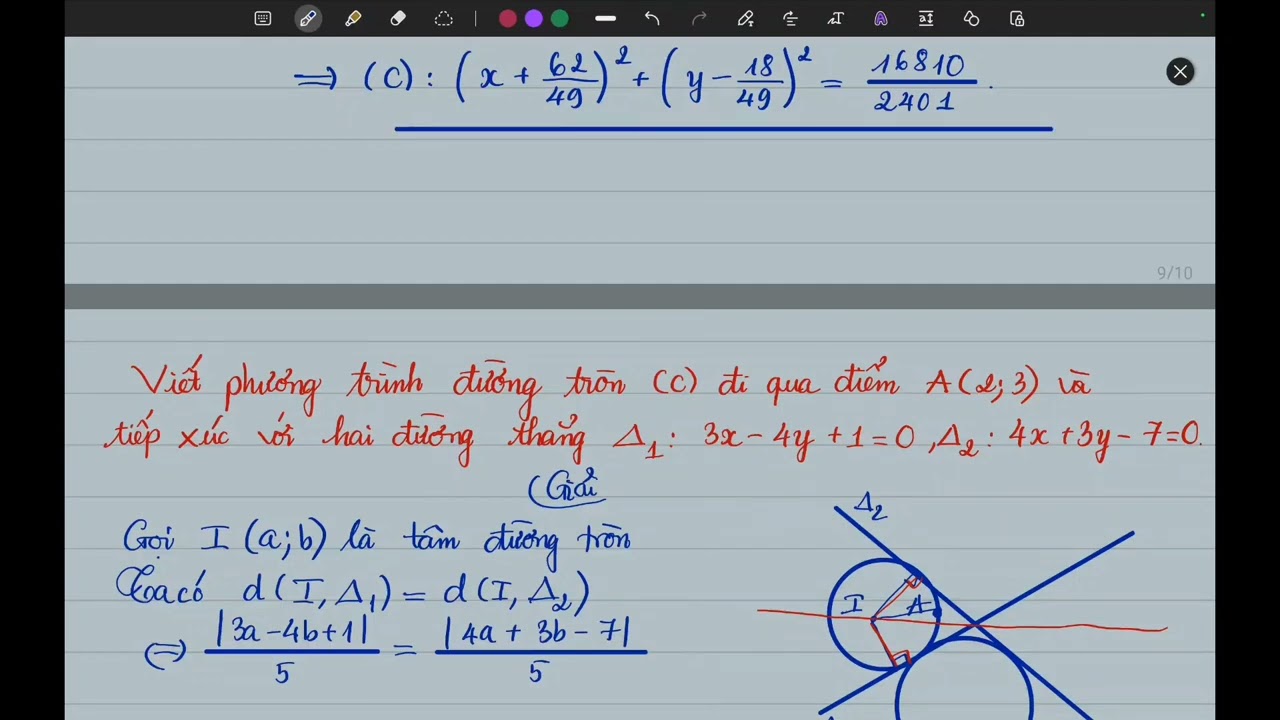 ⟹ (C) : (x + 62/49)² + (y − 18/49)² = 16810/2401 .
9/10
Viết phương trình đường tròn (C) đi qua điểm A(2;3) và
tiếp xúc với hai đường thẳng Δ₁ : 3x − 4y + 1 = 0 , Δ₂ : 4x + 3y − 7 = 0.
Giải
Gọi I (a;b) là tâm đường tròn
Ta có d(I, Δ₁) = d(I, Δ₂)
⇔ |3a − 4b + 1|/5 = |4a + 3b − 7|/5
Δ₂
I
A